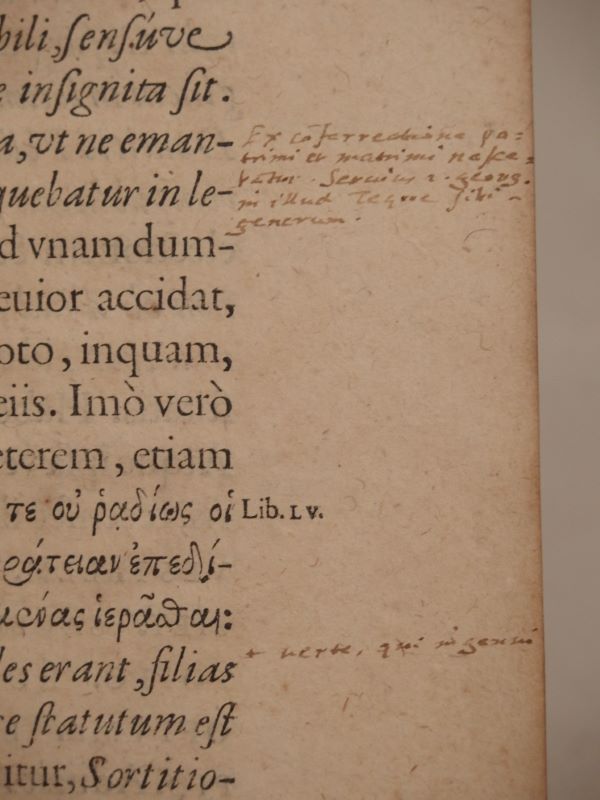 bili, ſensúve
e inſignita ſit.
a, vt ne eman-
quebatur in le-
d vnam dum-
euior accidat,
oto, inquam,
eiis. Imò verò
eterem, etiam
τε οὐ ῥαδίως οἱ
ράτειαν ἐπεδί-
ἱερᾶσθαι:
les erant, filias
re ſtatutum eſt
itur, Sortitio-
Ex cōferreatione pa-
trimi et matrimi naſce-
bātur. Seruius 1. georg.
in illud Teque ſibi
generum.
Lib. LV.
+ verte, qui ingenui